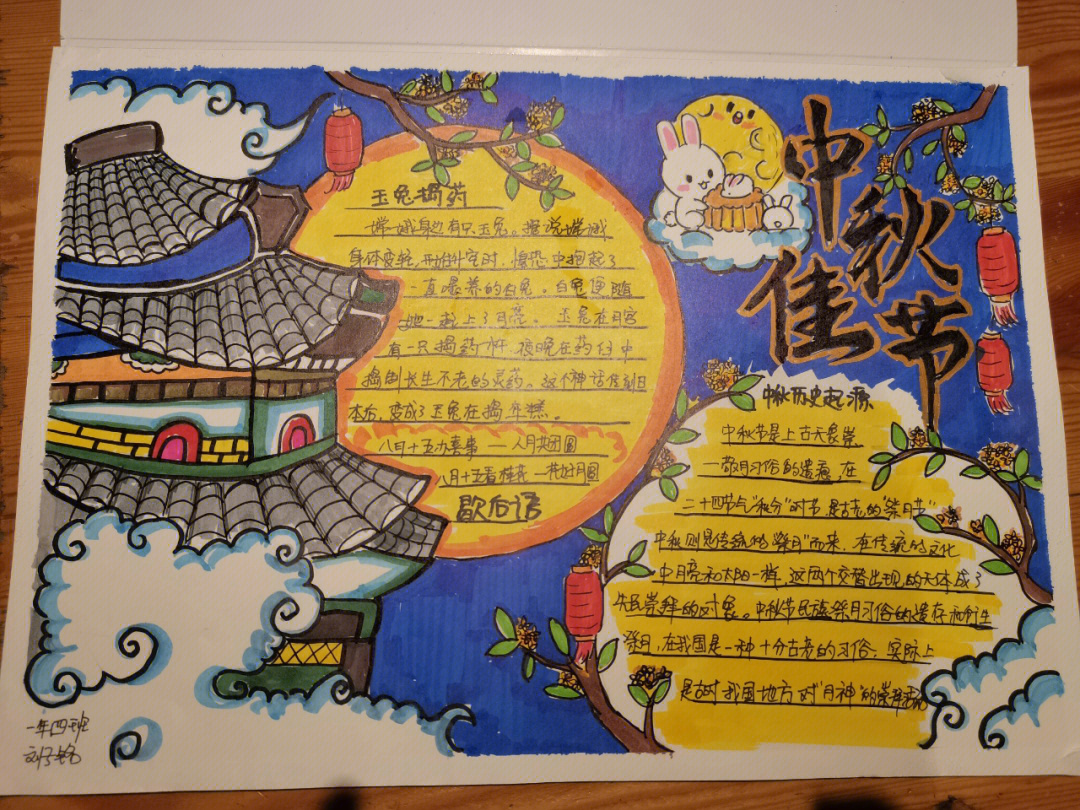 中秋佳节
玉兔捣药
嫦娥身边有只玉兔。据说嫦娥
身体变轻,开始升空时,惶恐中抱起了
一直喂养的白兔。白兔便随
她一起上了月亮。玉兔在月宫
有一只捣药杵,夜晚在药臼中
捣制长生不老的灵药。这个神话传到日
本后,变成了玉兔在捣年糕。
八月十五办喜事—人月共团圆
八月十五看桂花—花好月圆
歇后语
中秋历史起源
中秋节是上古天象崇
—敬月习俗的遗痕,在
二十四节气"秋分"时节,是古老的"祭月节"
中秋则是传统的"祭月"而来,在传统的文化
中月亮和太阳一样,这两个交替出现的天体成了
先民崇拜的对象。中秋节民族祭月习俗的遗存和衍生
祭月,在我国是一种十分古老的习俗,实际上
是古时我国地方对"月神"的崇拜活动
一年四班
刘子